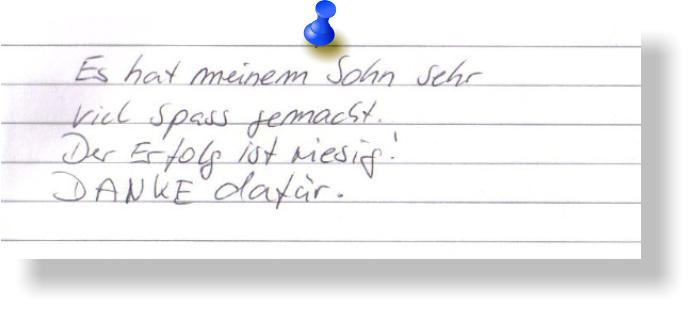 Es hat meinem Sohn sehr
viel Spass gemacht.
Der Erfolg ist riesig!
DANKE dafür.